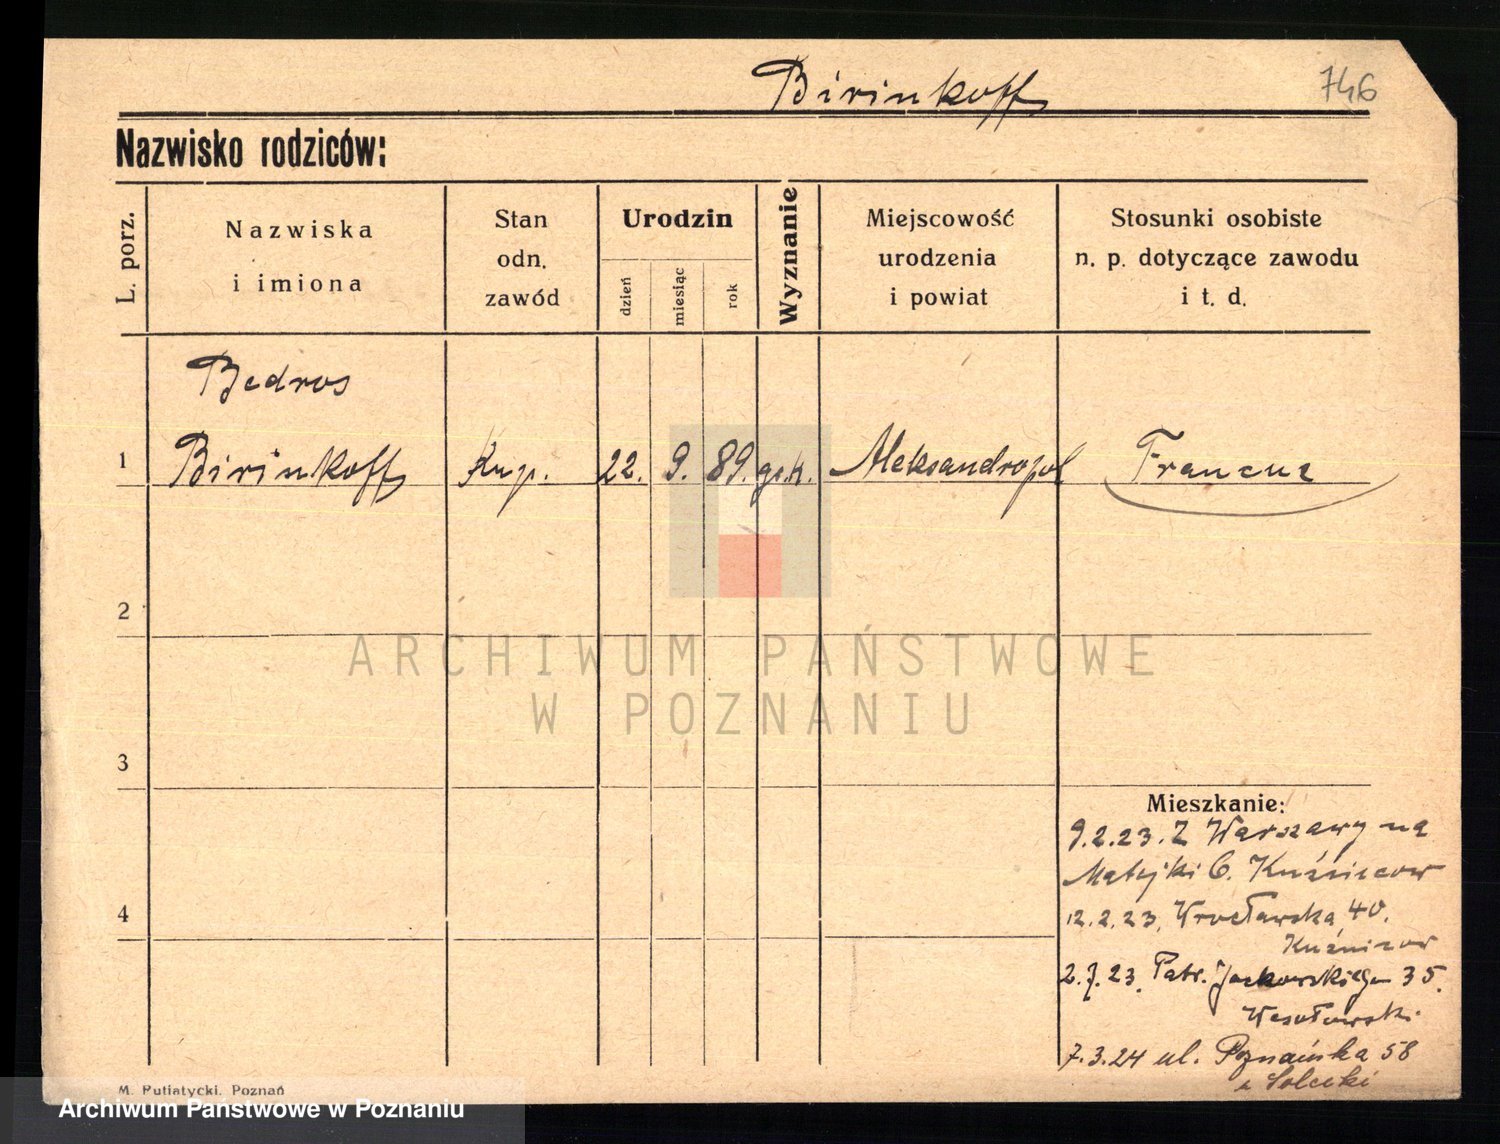 Birinkoff 746
Nazwisko rodziców:
L. porz.
Nazwiska
i imiona
Stan
odn.
zawód
Urodzin
dzień
miesiąc
rok
Wyznanie
Miejscowość
urodzenia
i powiat
Stosunki osobiste
n. p. dotyczące zawodu
i t. d.
Bedros
1 Birinkoff Kup. 22. 9. 89. gr.k. Aleksandropol Francuz
2
ARCHIWUM PAŃSTWOWE
W POZNANIU
3
Mieszkanie:
9.2.23. Z Warszawy na
Matejki 6. Kuźnicow
4
12.2.23. Wrocławska 40.
Kuźnicow
2.7.23. Patr. Jackowskiego 35.
Wesołowski
7.3.24 ul. Poznańska 58
Solecki
M. Putiatycki. Poznań
Archiwum Państwowe w Poznaniu